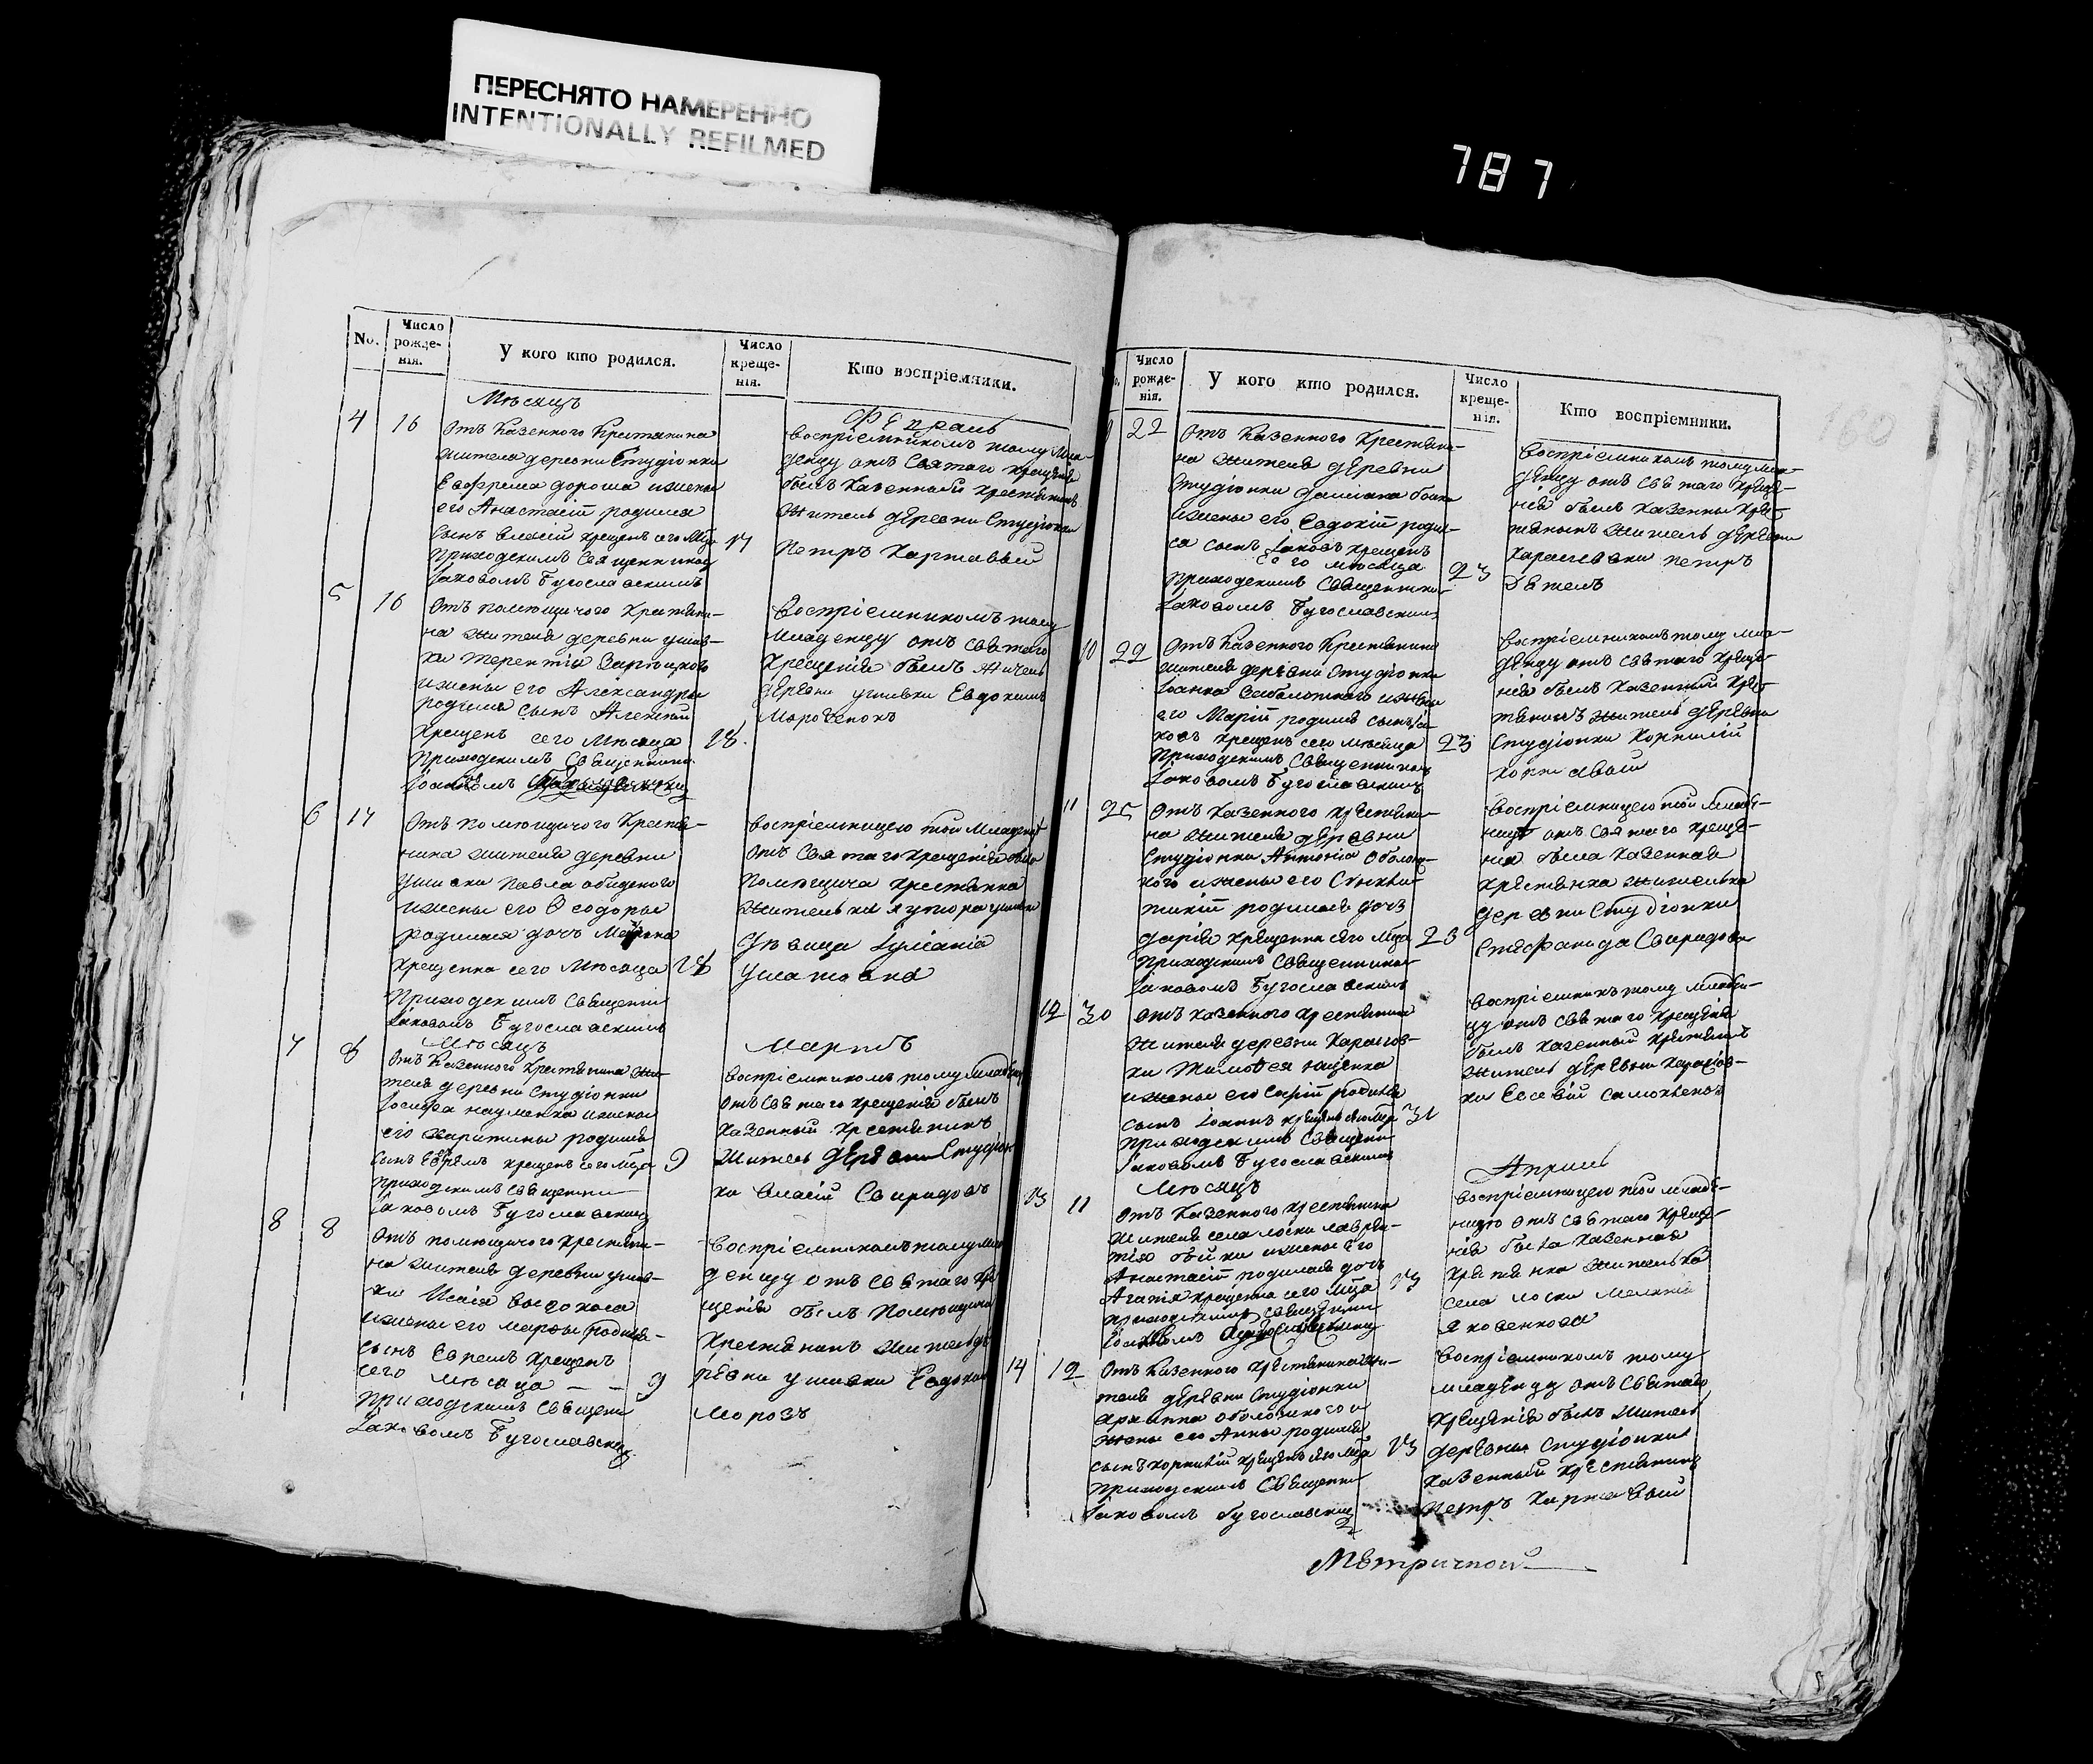 ПЕРЕСНЯТО НАМЕРЕННО
INTENTIONALLY REFILMED
787
No.
Число рожде-нія.
У кого кто родился.
Число креще-нія.
Кто воспріемники.
Мѣсяцъ
Февраль
4 16
Отъ Казенного Крестянина
жителя деревни Студіонки
Евфрема дороша и жены
его Анастасіи родился
сынъ Власій крещенъ сего Мца 17
Приходскимъ Священникомъ
Іаковомъ Бугославскимъ
Воспріемникомъ тому Мла-
денцу отъ Святаго крещенія
былъ Казенный крестянинъ
Житель деревни Студіонки
Петръ Картавый
5 16
Отъ помѣщичого Крестяни-
на жителя деревни ушив-
ки Терентія
и жены его Александры
родился сынъ Алексій
Крещенъ сего Мѣсяца 18.
Приходскимъ Священнико
Воспріемникомъ тому
Младенцу отъ святаго
Крещенія былъ житель
деревни ушивки Евдокимъ
Морозенокъ
6 17
Отъ помѣщичого Крестя-
нина жителя деревни
ушивки Павла обидного
и жены его Ѳеодоры
родилася дочъ
Крещенна сего Мѣсяца 18
Приходскимъ Священни
Іаковомъ Бугославскимъ
воспріемницею той Младенц
Отъ Святаго крещенія была
Помѣщича крестянка
Жителька хутора
Дѣвица Іуліанія
7 8
Мѣсяцъ
Мартъ
Отъ Казенного Крестянина жи-
теля деревни Студіонки
Іосифа науменка и жены
его Харитины родился
сынъ Евремъ крещенъ сего Мца 9
приходскимъ священни
Іаковомъ Бугославскимъ
Воспріемникомъ тому младенц
отъ святаго крещенія былъ
казенный крестянинъ
Житель деревни Студіон
ки Власій Свиридовъ
8 8
Отъ помѣщичого крестяни-
на жителя деревни ушив-
ки Исаія
и жены его Марфы родился
сынъ Евремъ Крещенъ
сего Мѣсяца — — 9
Приходскимъ священи
Іаковомъ Бугославскимъ
Воспріемникомъ тому мла
денцу отъ святаго кре
щенія былъ Помѣщичи
Крестянинъ житель де
ревни ушивки Евдоким
Морозъ
Число рожде-нія.
У кого кто родился.
Число креще-нія.
Кто воспріемники.
22
Отъ Казенного Крестяни-
на жителя деревни
Студіонки Даміана
и жены его Евдокіи роди-
ся сынъ Іаковъ крещенъ
сего мѣсяца 23
Приходскимъ Священнико
Іаковомъ Бугославскимъ
Воспріемникомъ тому мла-
денцу отъ святаго креще-
нія былъ Казенны кре-
тянинъ житель деревни
Карасіовки петръ
10 22
Отъ Казенного Крестянина
жителя деревни Студіонки
и жены
его Маріи родился сынъ Іа
ковъ крещенъ сего мѣсяца 23
Приходскимъ Священникомъ
Іаковомъ Бугославскимъ
Воспріемникомъ тому мла-
денцу отъ святаго креще-
нія былъ Казенный кре-
тянинъ житель деревни
Студіонки Корнилій
картавый
11 25
Отъ Казенного крестяни-
на жителя деревни
Студіонки Антонія Оболон-
кого и жены его Синкли-
тикіи родилася дочъ
Дарія крещенна сего Мца
Приходскимъ Священнико
Іаковомъ Бугославскимъ
Воспріемницею той младе-
ницѣ отъ святаго креще-
нія была Казенная
крестянка жителька
деревни Студіонки
Стефанида Свиридова
12 30
Отъ казенного крестянина
жителя деревни Карасіов-
ки Тимофея
и жены его родился
сынъ Іоаннъ крещенъ сего Мца 31
приходскимъ священни
Іаковомъ Бугославскимъ
воспріемникъ тому младен-
цу отъ святаго крещенія
былъ казенный крестянинъ
житель деревни Карасіов-
ки Евсевій
Мѣсяцъ
Апрель
13 11
Отъ Казенного крестянина
жителя села лоски лаврен-
тія и жены его
Анастасіи родилася дочъ
Агапія крещенна сего Мца 13
приходскимъ священни
воспріемницею той младе-
ницѣ отъ святаго креще-
нія была казенная
крестянка жителька
села лоски Меланія
Яковенкова
14 12
Отъ Казенного крестянина жи-
теля деревни Студіонки
Архиппа оболонского и
жены его Анны родился
сынъ корнилій крещенъ сего Мца 13
приходскимъ Священни
Іаковомъ Бугославским
Воспріемникомъ тому
младенцу отъ святаго
крещенія былъ житель
деревни Студіонки
казенный крестянинъ
Петръ Картавый
Метричной